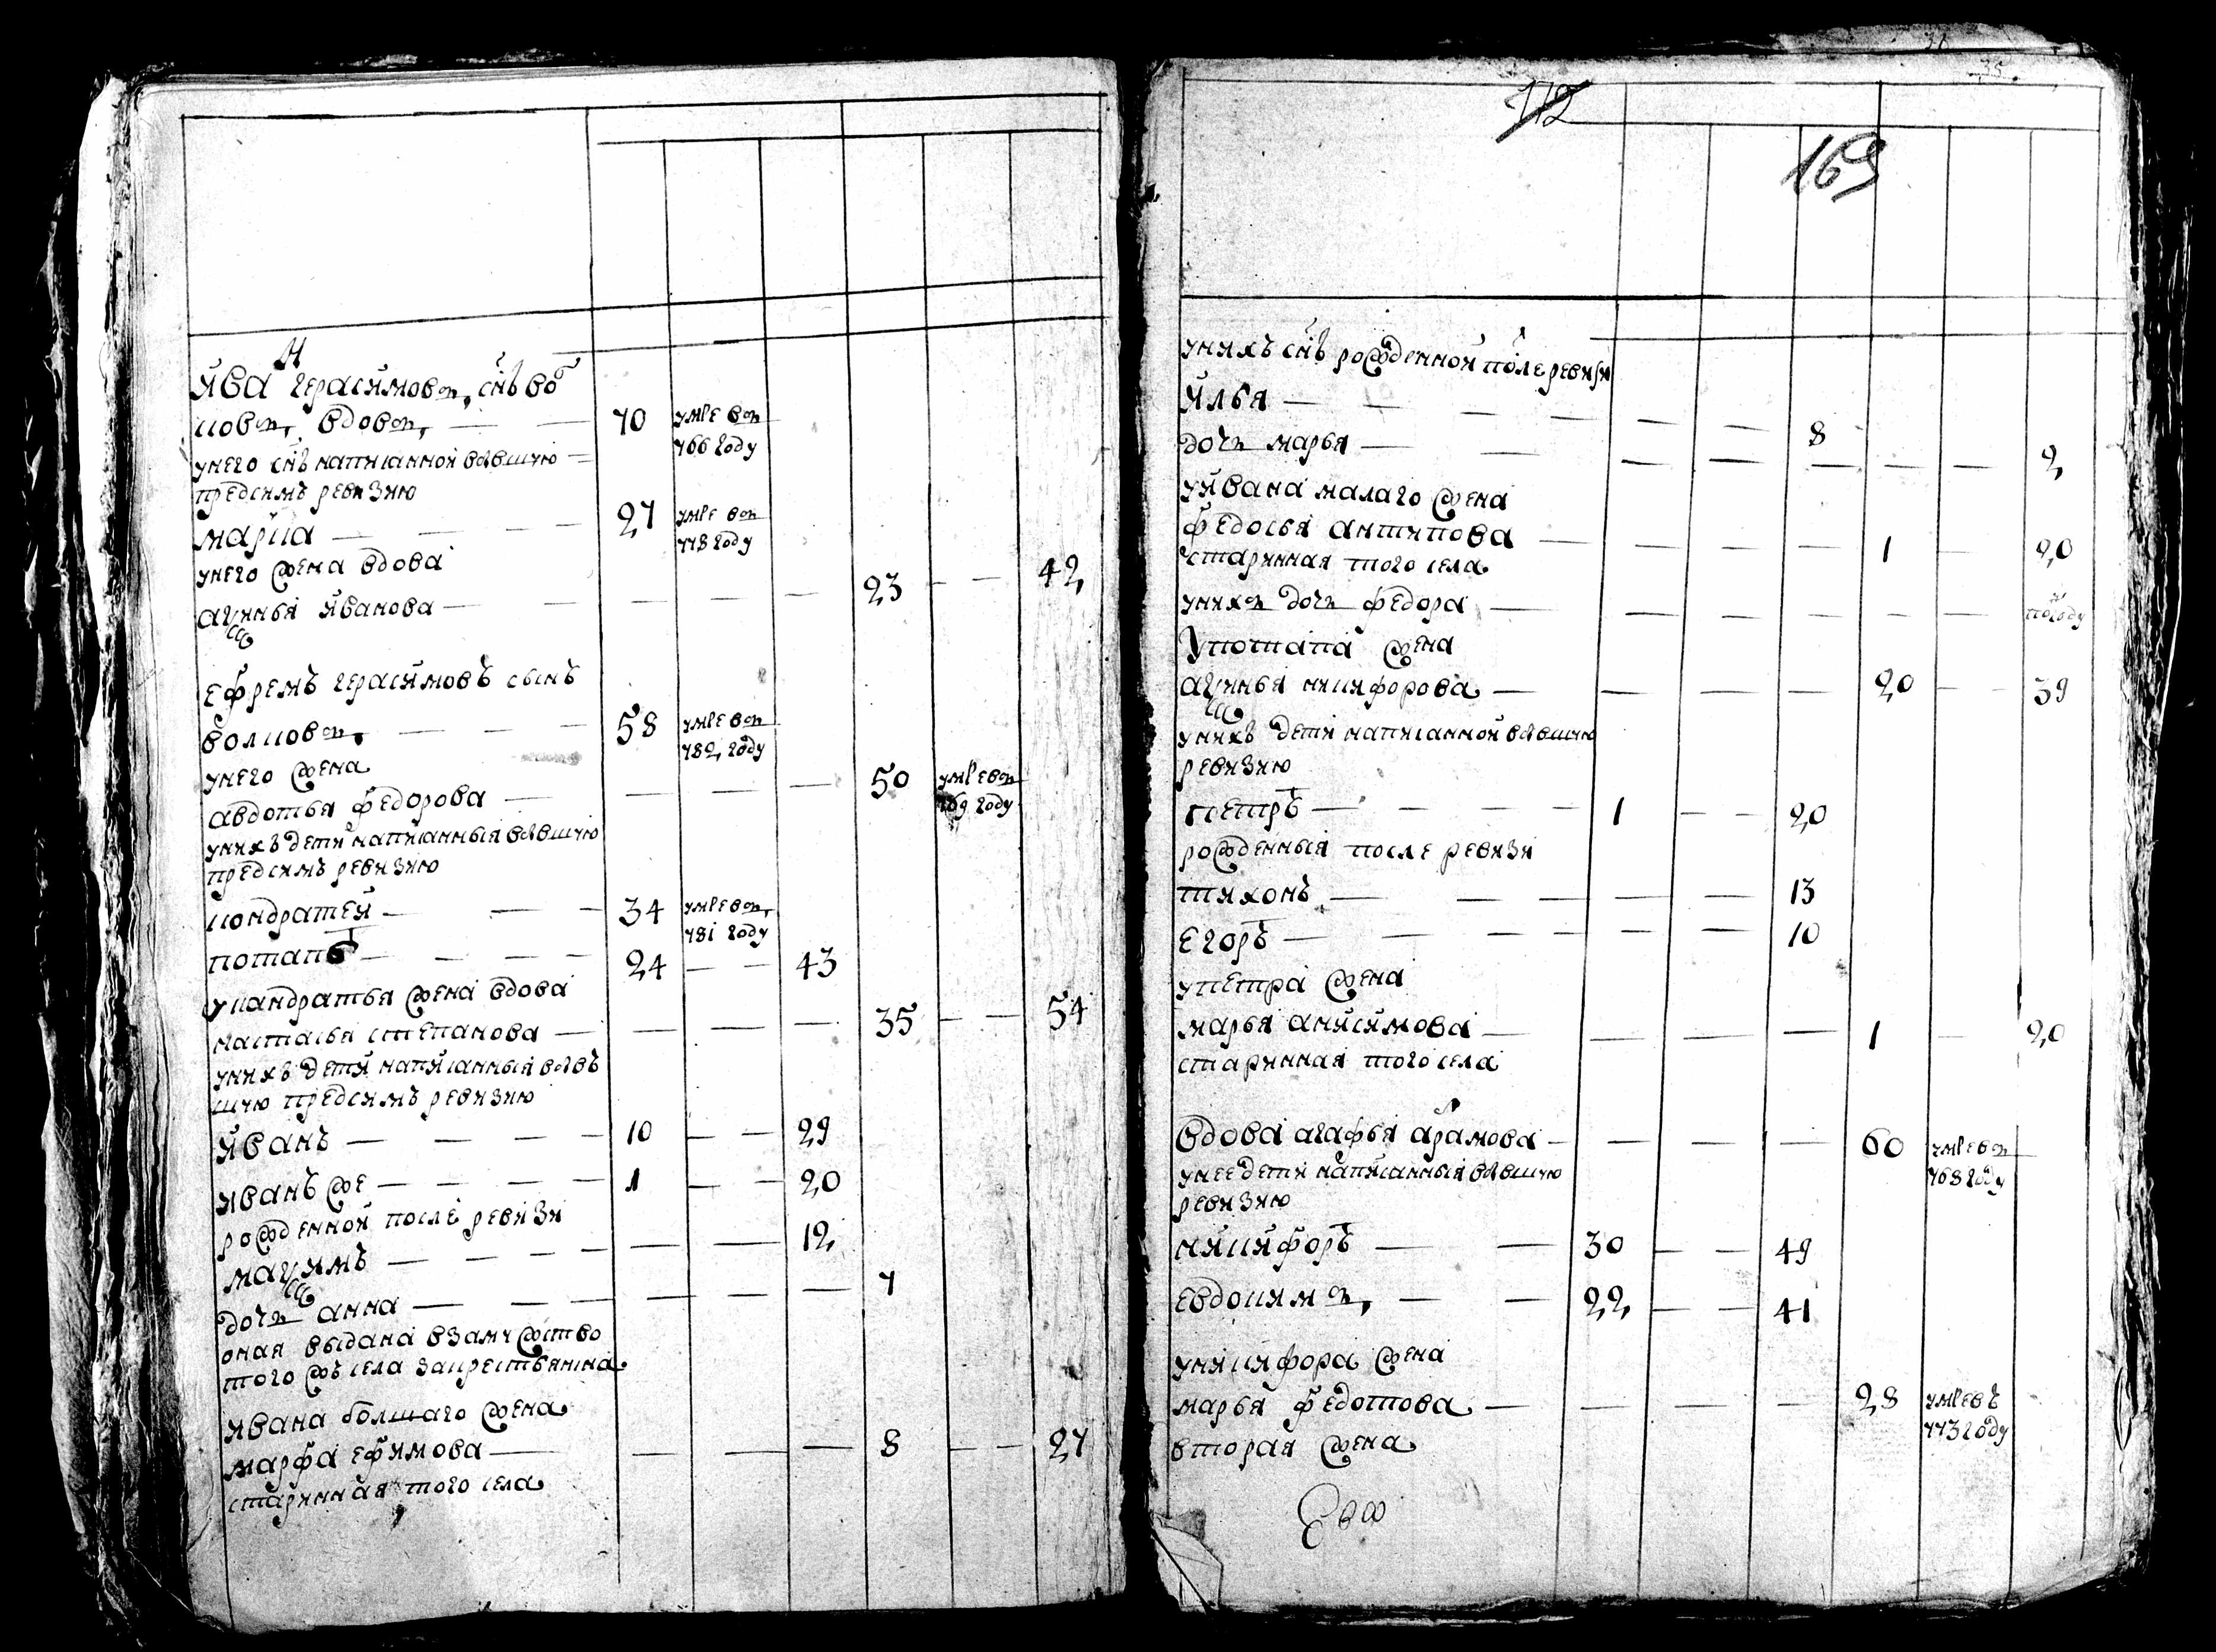 Ива Н герасимовъ, снъ во
лковъ, вдовъ, — — 70 умре въ
766 году
унего снъ написанной вбывшую
предсимъ ревизию
марка — — — 27 умре въ
778 году
унего жена вдова
аѯинья иванова — — — — — 23 — — 42
ефремъ герасимовъ сынъ
волковъ, — — — 58 умре въ
782 году
унего жена
авдотья федорова — — — — 50 умре въ
769 году
унихъ дети написанныя вбывшую
предсимъ ревизию
кондратей — — — 34 умре въ,
781 году
потапъ — — — — 24 — — 43
укандратья жена вдова
настасья степанова — — — — 35 — — 54
унихъ дети написанныя вбыв
шую предсимъ ревизию
иванъ — — — — 10 — — 29
иванъ же — — — — 1 — — 20
рожденной после ревизи
маѯимъ — — — — — — 12
дочь анна — — — — — — 7
оная выдана взамужство
того жъ села закрестьянина
ивана болшаго жена
марфа ефимова — — — — 8 — — 27
старинная того села
112
169
унихъ снъ рожденной после ревизи
илья — — — — — — 8
дочь марья — — — — — — — 2
уивана малаго жена
федосья антипова — — — — 1 — 20
старинная того села
унихъ дочь федора — — — — — — полгоду
употапа жена
аѯинья никифорова — — — — 20 — — 39
унихъ дети написанной вбывшую
ревизию
петръ — — — — 1 — — 20
рожденныя после ревизи
тихонъ — — — — — — 13
егоръ — — — — — — 10
упетра жена
марья анисимова — — — — 1 — 20
старинная того села
вдова агафья — — — — 60 умре въ
768 году
унее дети написанныя вбывшую
ревизию
никифоръ — — 30 — — 49
евдокимъ, — — 22 — — 41
уникифора жена
марья федотова — — — — 28 умре въ
773 году
вторая жена